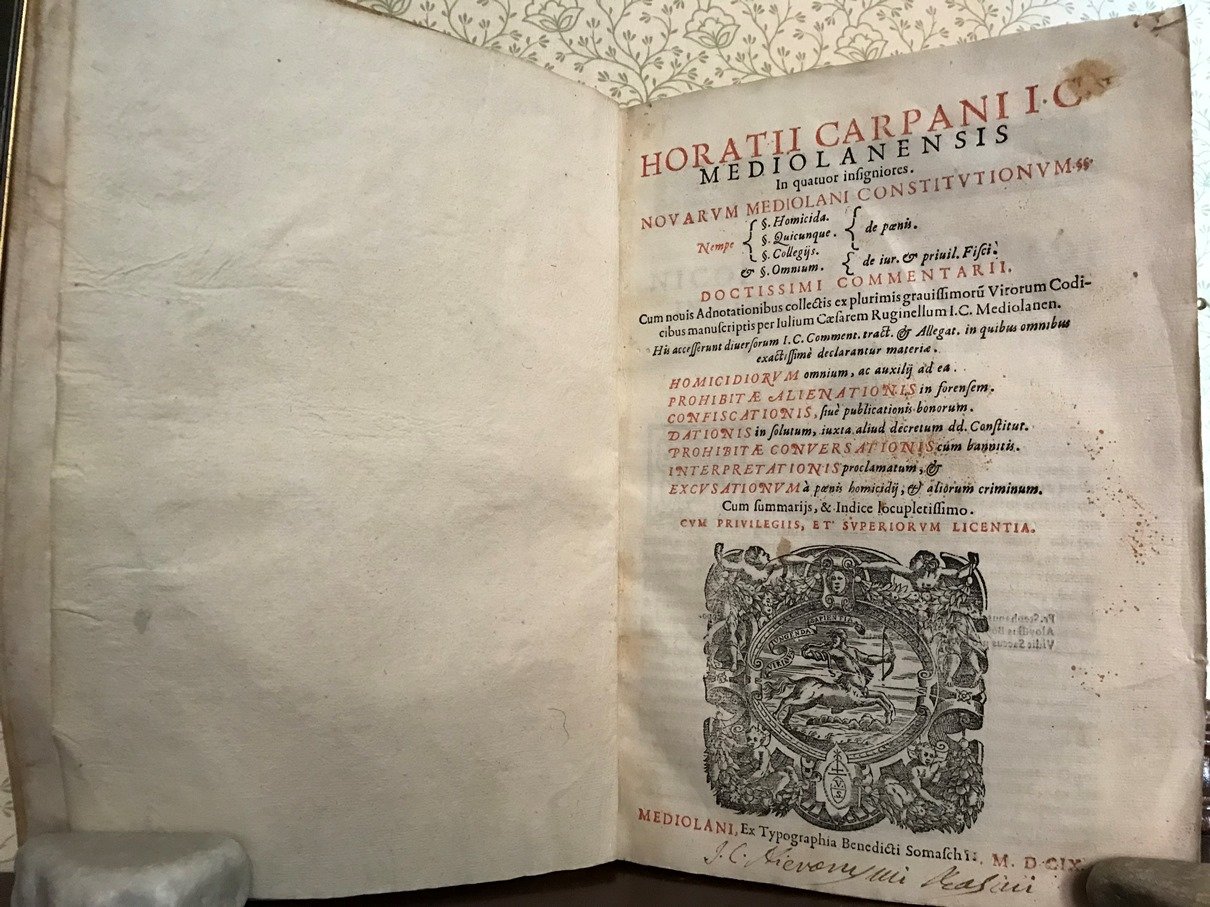 HORATII CARPANI I.C.
MEDIOLANENSIS
In quatuor inſigniores.
NOVARVM MEDIOLANI CONSTITVTIONVM.
Nempe { §. Homicida. { de pœnis.
§. Quicunque.
§. Collegijs.
& §. Omnium. { de iur. & priuil. Fiſci.
DOCTISSIMI COMMENTARII.
Cum nouis Adnotationibus collectis ex plurimis grauiſſimorũ Virorum Codi-
cibus manuſcriptis per Iulium Cæſarem Ruginellum I.C. Mediolanen.
His acceſſerunt diuerſorum I.C. Comment. tract. & Allegat. in quibus omnibus
exactiſſimè declarantur materiæ.
HOMICIDIORVM omnium, ac auxilij ad ea.
PROHIBITÆ ALIENATIONIS in forenſem.
CONFISCATIONIS, ſiuè publicationis bonorum.
DATIONIS in ſolutum, iuxta aliud decretum dd. Conſtitut.
PROHIBITÆ CONVERSATIONIS cum bannitis.
INTERPRETATIONIS proclamatum, &
EXCVSATIONVM à pœnis homicidij, & aliorum criminum.
Cum ſummarijs, & Indice locupletiſſimo.
CVM PRIVILEGIIS, ET SVPERIORVM LICENTIA.
IVNGENDA SAPIENTIA
VIRIBVS
MEDIOLANI, Ex Typographia Benedicti Somaſchi. M. D CIX
J. C. Hieronymi